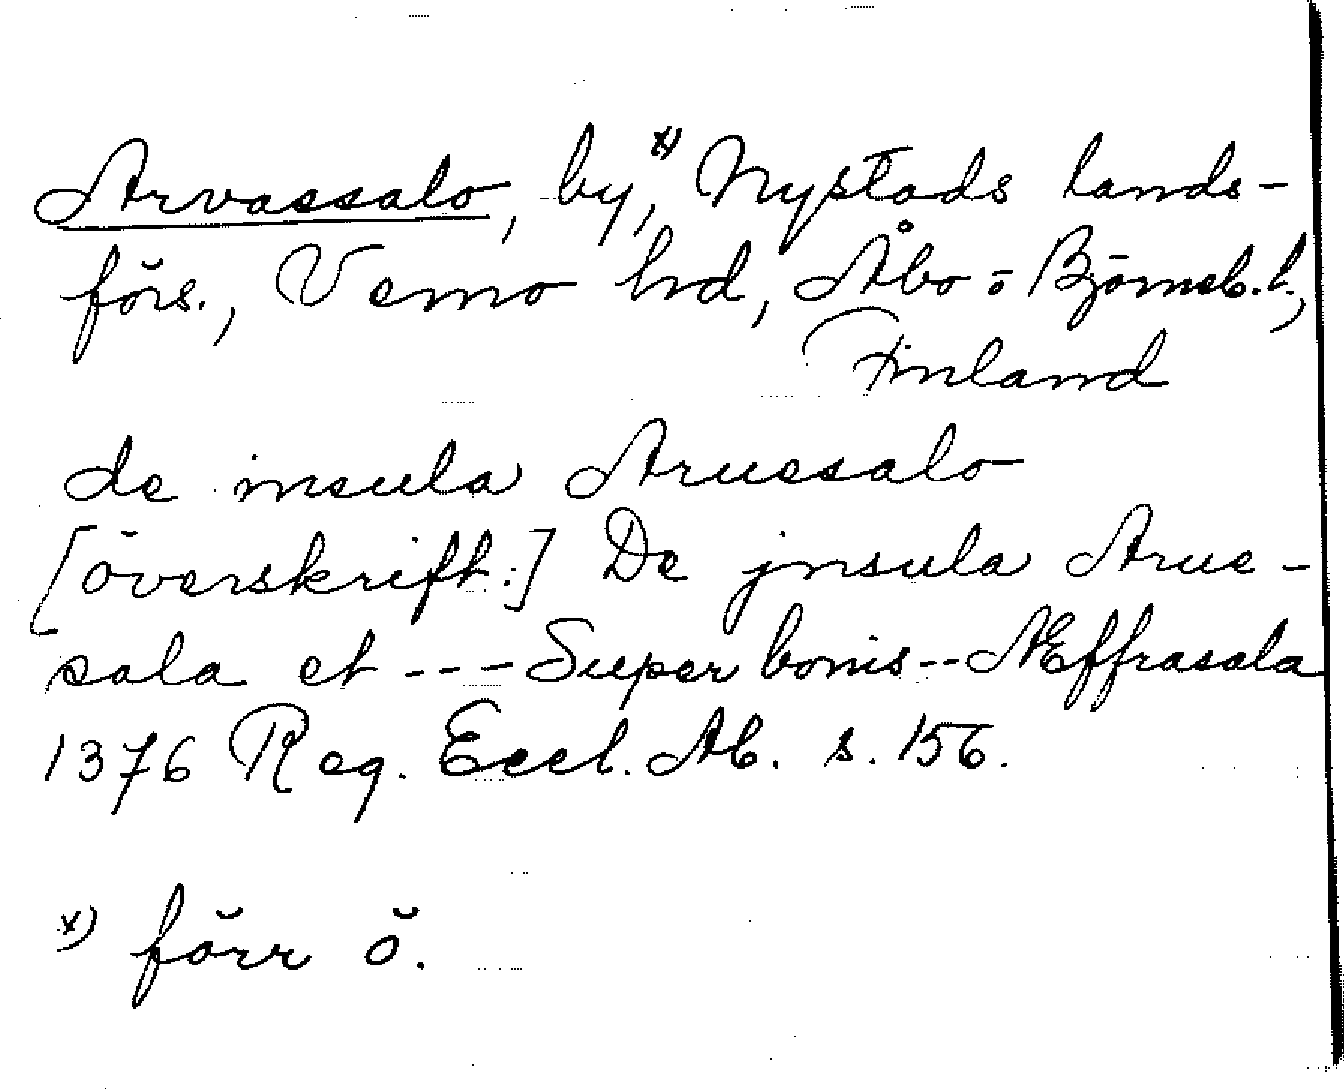 Arvassalo, by,x) Nystads lands-
förs., Vemo hd, Åbo o Björneb. l.,
Finland
de insula Aruessalo
[överskrift:] De jnsula Arue-
sala et --- Super bonis -- Æffrasala
1376 Reg. Eccl. Ab. s. 156.
x) förr ö.